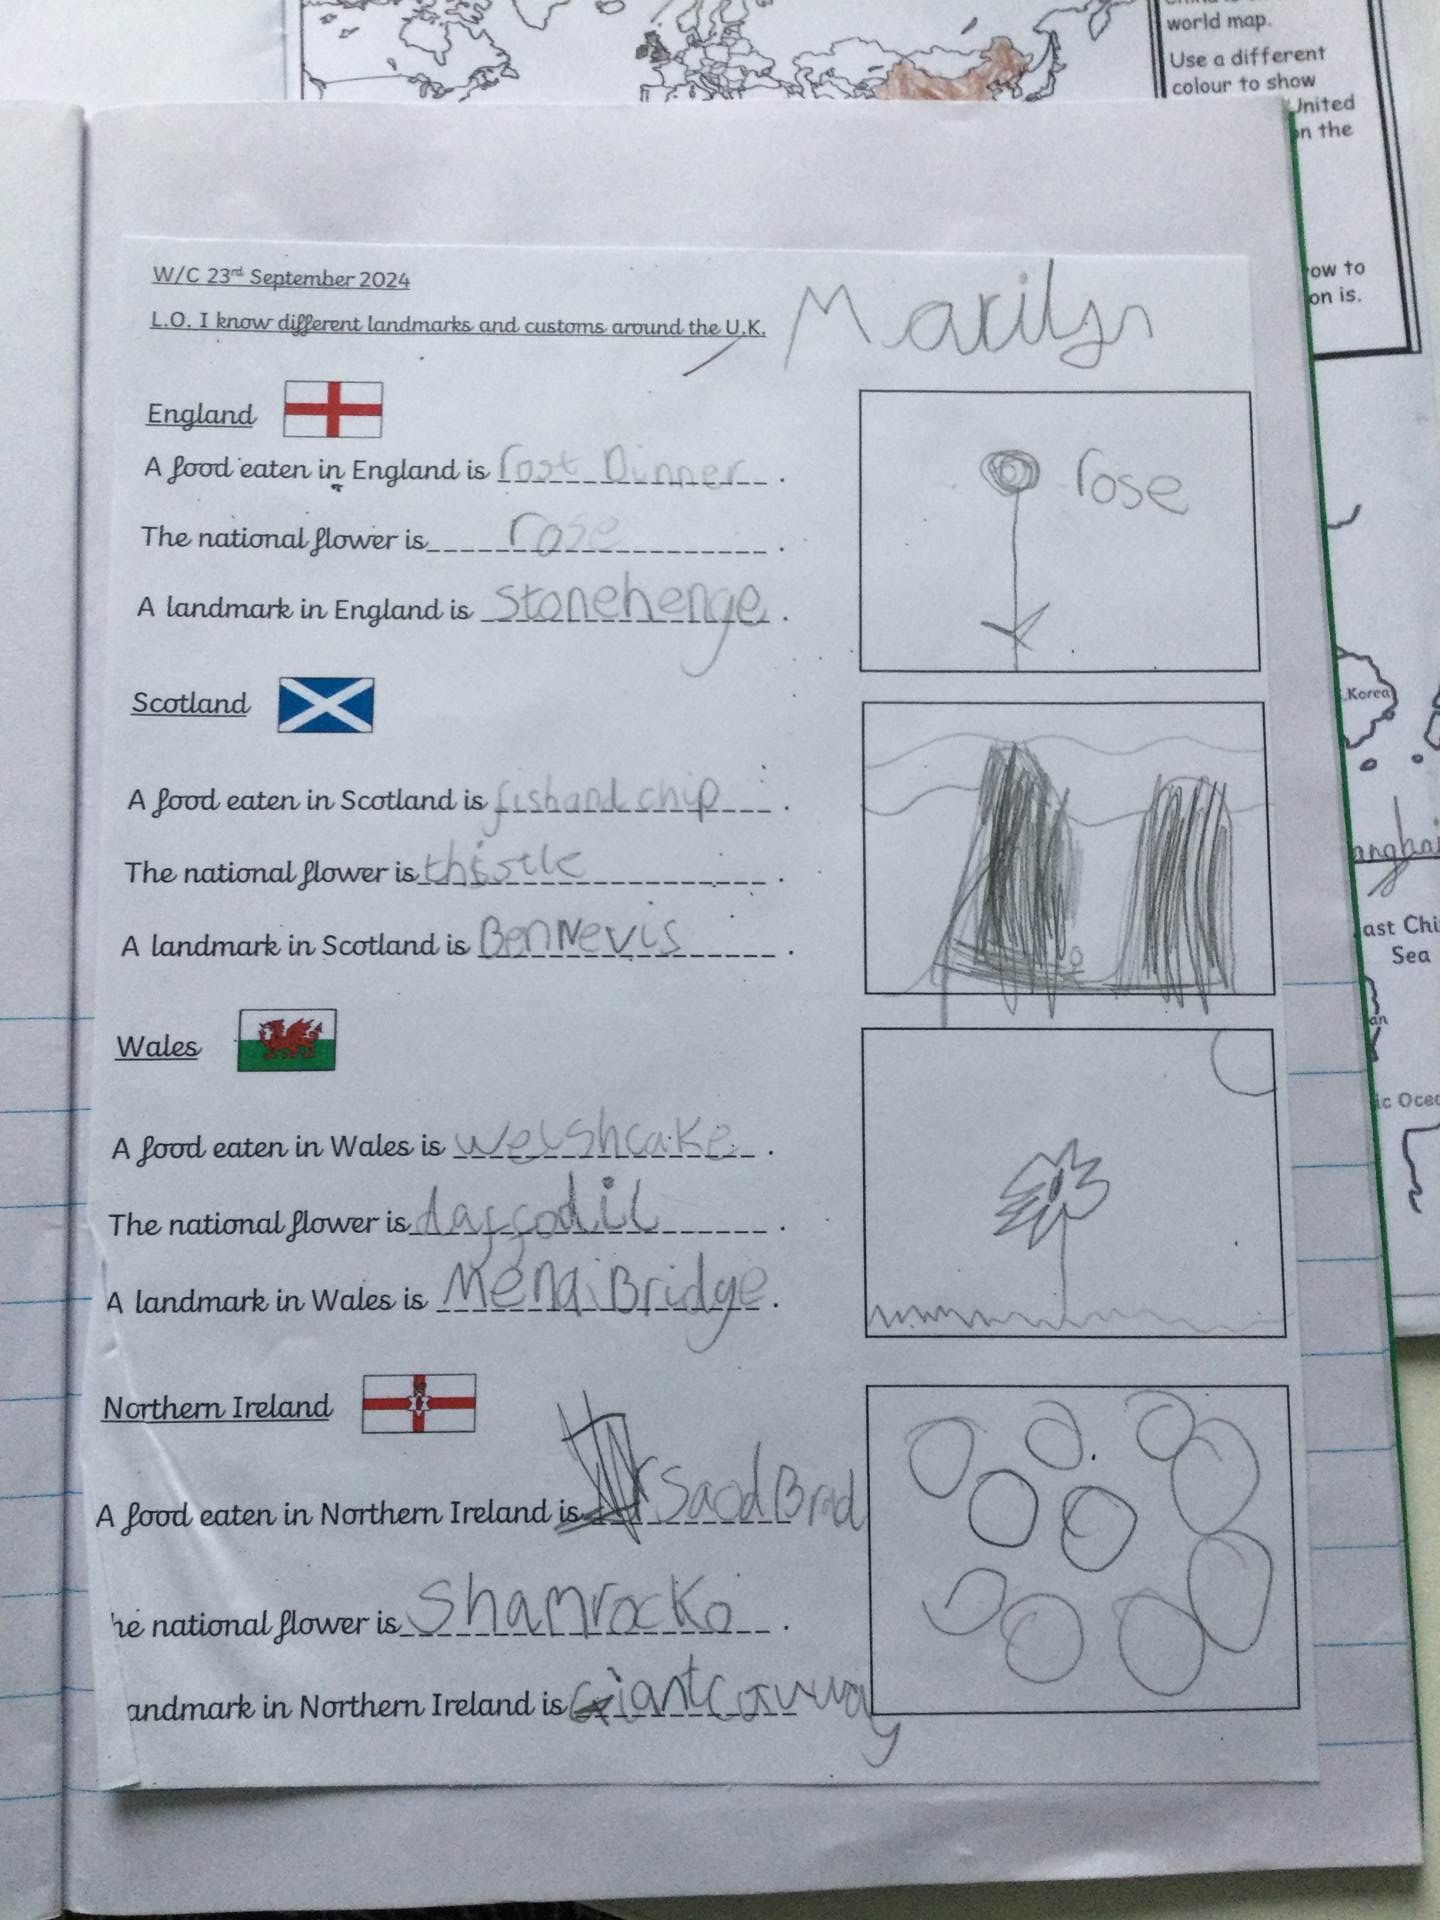 world map.
Use a different
colour to show
United
on the
ow to
on is.
W/C 23rd September 2024
L.O. I know different landmarks and customs around the U.K.
Marilyn
England
A food eaten in England is rost Dinner.
The national flower is rose.
A landmark in England is stonehenge.
rose
Scotland
A food eaten in Scotland is fish and chip.
The national flower is thistle.
A landmark in Scotland is Ben Nevis.
Wales
A food eaten in Wales is welshcake.
The national flower is daffodil.
A landmark in Wales is Menai Bridge.
Northern Ireland
A food eaten in Northern Ireland is Saod Brad
he national flower is Shamrock.
andmark in Northern Ireland is Giant
Korea
anghai
ast Chi
Sea
an
ic Ocea